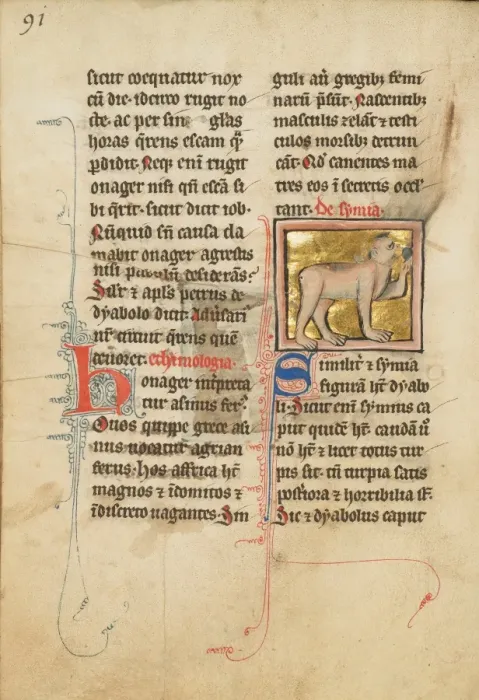 91
sicut coequatur nox
cū die· idcirco rugit no
cte· ac per sin glas
horas q̄rens escam q̄
ꝑdidit· Neqꝫ eni rugit
onager nisi qn̄ escā si
bi q̄rit· sicut dicit iob·
Nūquid cla
mabit onager agrestis
nisi desiderās?
⁊ apls petrus de
dyabolo dicit· Adūsari
q̄rens quē
deuoret· ethimologia·
Honager int̄preta
tur asinus fer?
Onos quippe grece asi
nus uocatur agrian
ferus· hos affrica ht̄
magnos ⁊ īdomitos ⁊
īdiscreto uagantes· Sin
guli aū gregibꝫ femi
narū p̄sūt· Nascentibꝫ
masculis zelāt ⁊ testi
culos morsibꝫ detrun
cāt· ma
tres eos ī secretis occl̄
tant· De symia·
Similit̄ ⁊ symia
figurā ht̄ dyabo
li· Sicut eni symius ca
put quidē ht̄ caudā ū
nō ht̄ ⁊ licet totus tur
pis sit· tn̄ turpia satis
posteriora ⁊ horribilia st̄·
Sic ⁊ dyabolus caput